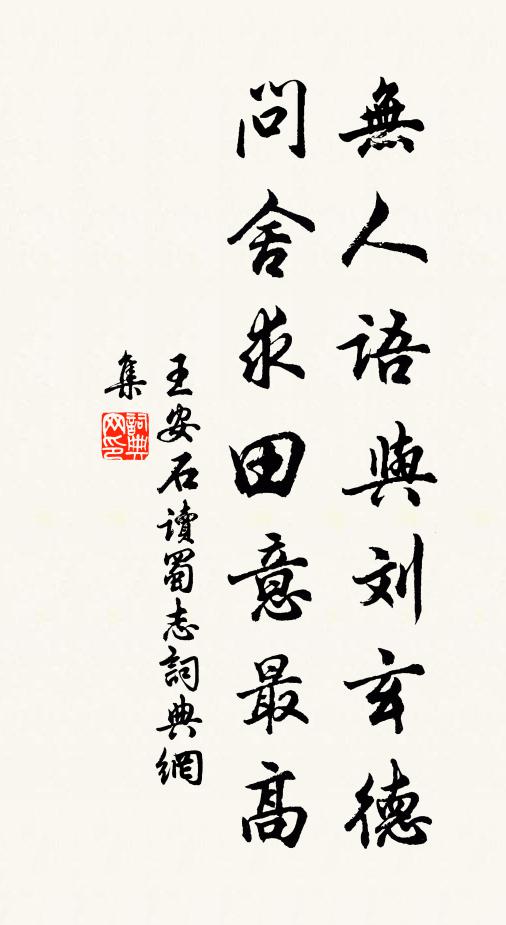 無人語與刘玄德
問舍求田意最高
王安石讀蜀志詞典網
集
詞典网印